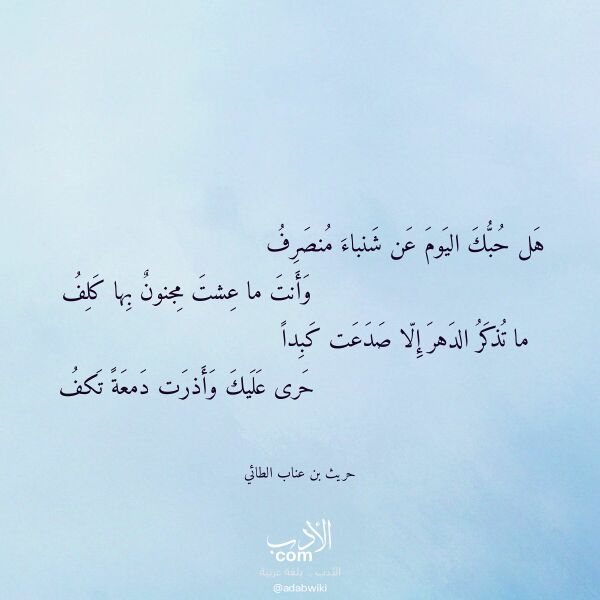 هَل حُبُّكَ اليَومَ عَن شَنباءَ مُنصَرِفُ
وَأَنتَ ما عِشتَ مِجنونٌ بِها كَلِفُ
ما تُذكَرُ الدَهرَ إِلّا صَدَعَت كَبِداً
حَرى عَلَيكَ وَأَذرَت دَمعَةً تَكفُ
حريث بن عناب الطائي
الأدب
com
الأدب .. بلغة عربية
@adabwiki